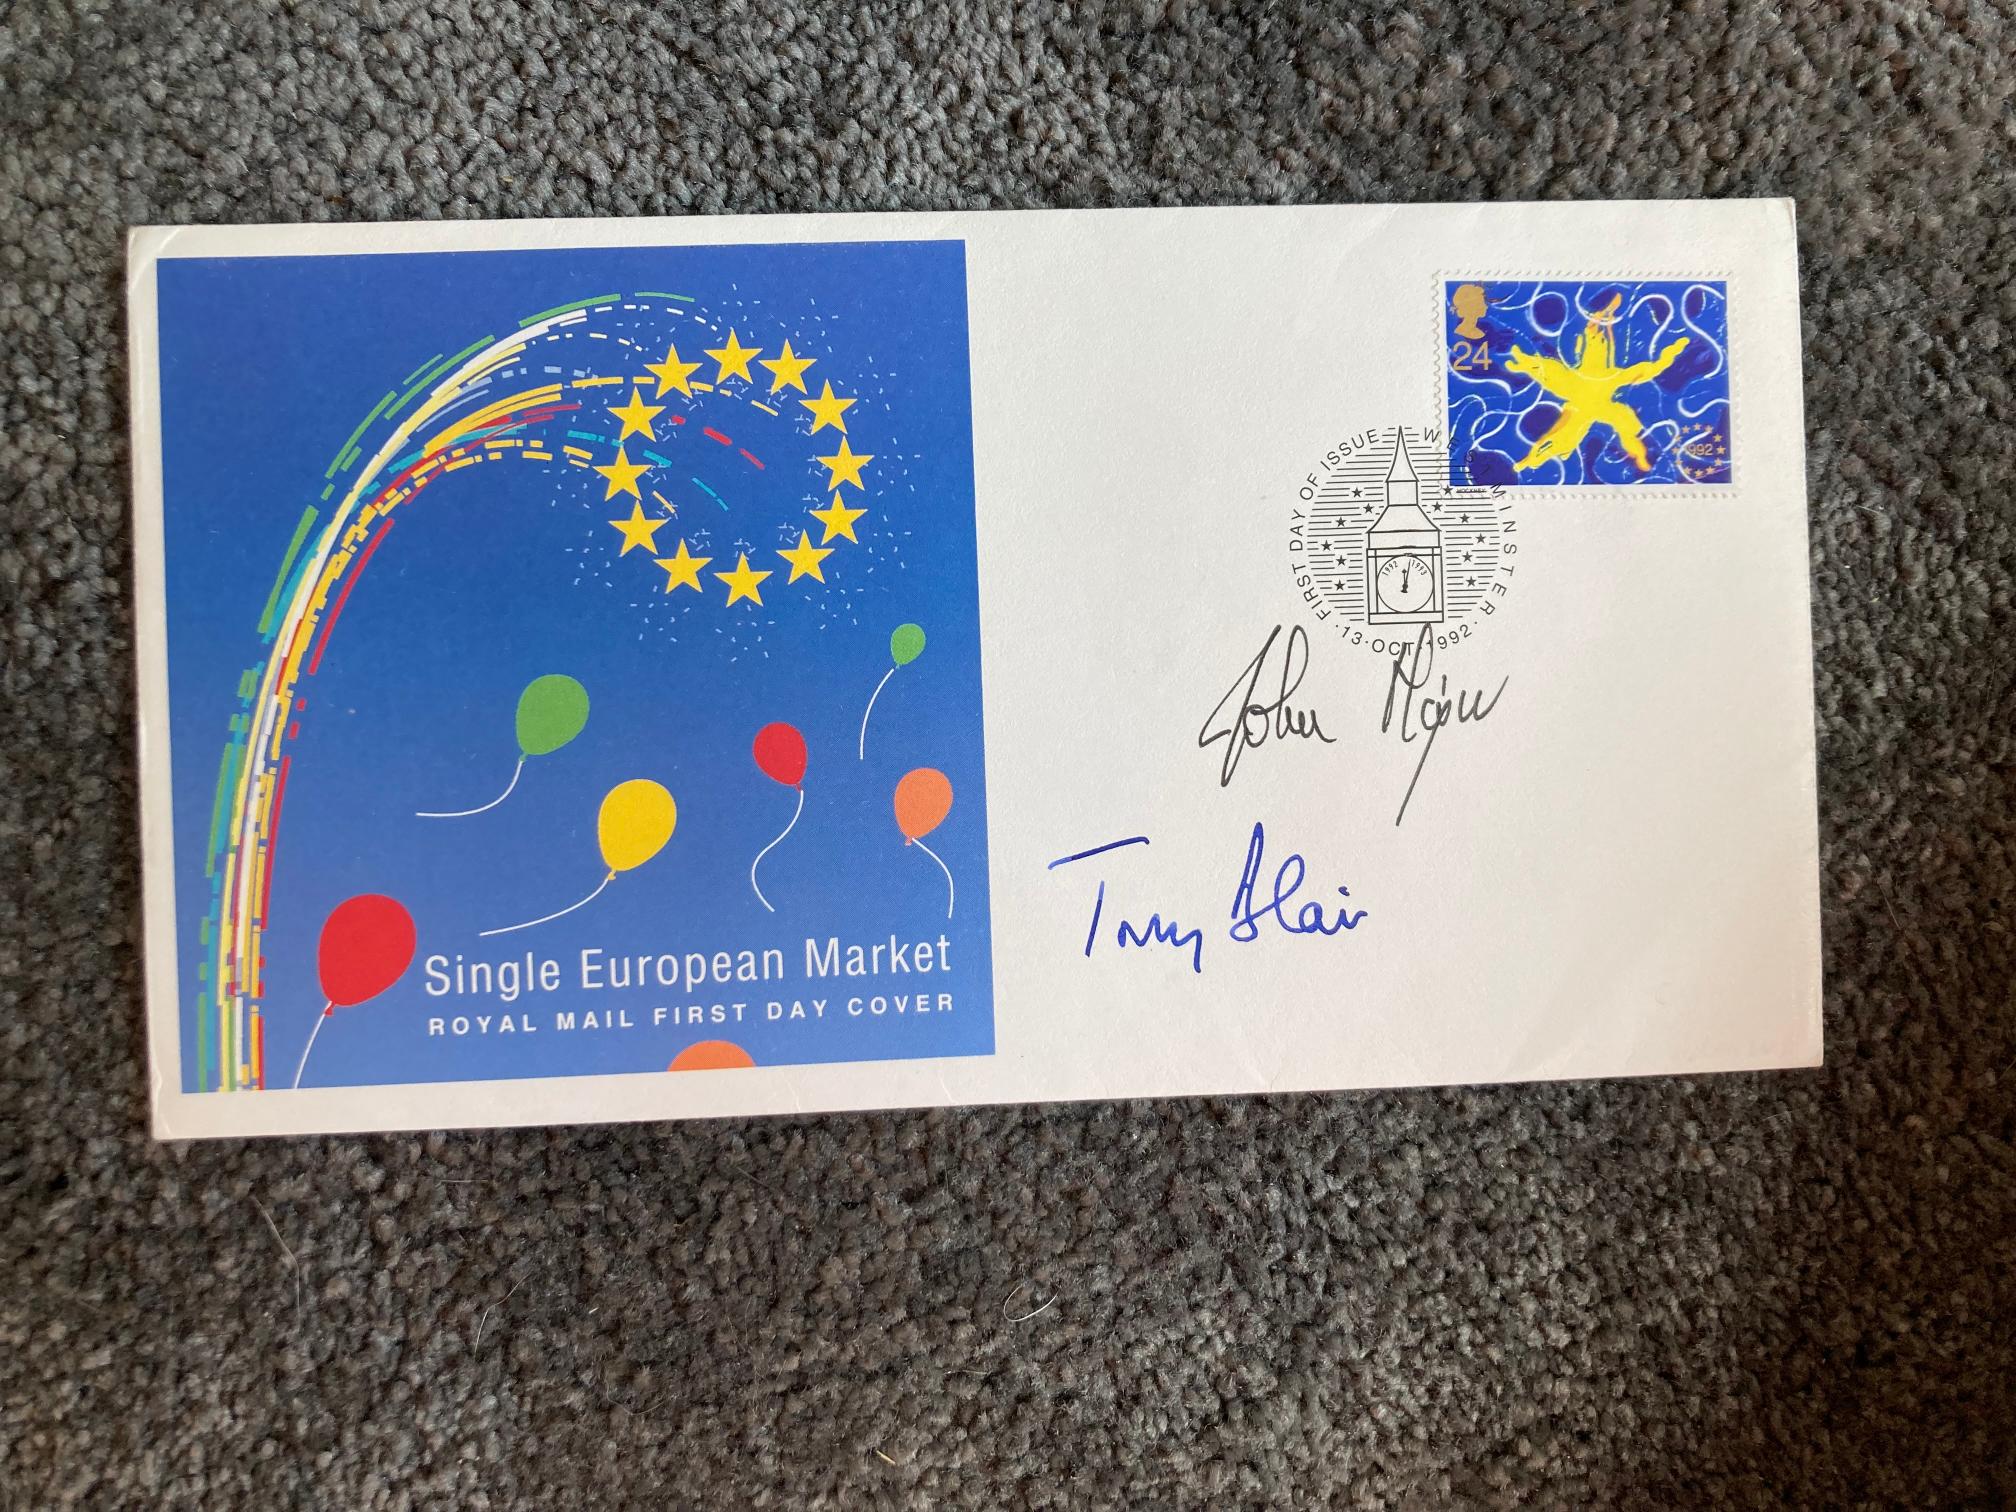 Single European Market
ROYAL MAIL FIRST DAY COVER
24
1992
HOCKNEY
FIRST DAY OF ISSUE WESTMINSTER
1992 1993
·13·OCT·1992·
John Major
Tony Blair